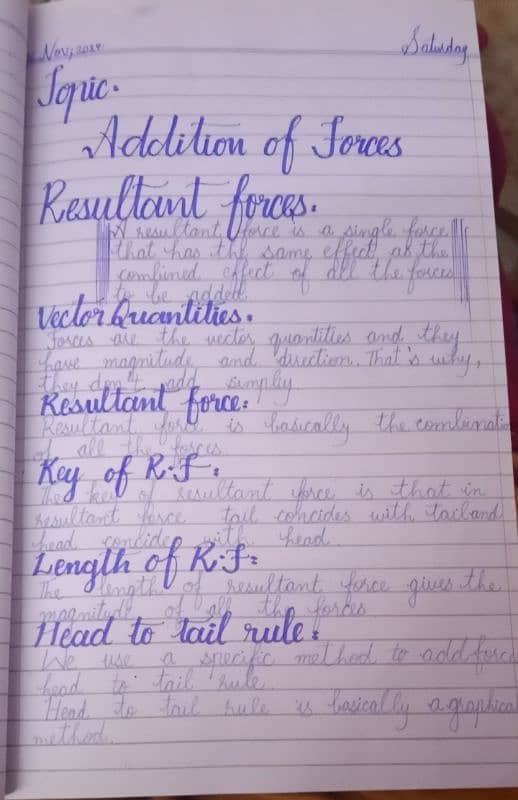 Nov, 2024
Saturday
Topic.
Addition of Forces
Resultant forces.
A resultant force is a single force
that has the same effect as the
combined effect of all the forces
to be added.
Vector Quantities.
Forces are the vector quantities and they
have magnitude and direction. That's why,
they don't add simply
Resultant force:
Resultant force is basically the combinatio
of all the forces.
Key of R.F:
The key of resultant force is that in
resultant force tail concides with tail and
head concides with head.
Length of R.F:
The length of resultant force gives the
magnitude of all the forces
Head to tail rule:
We use a specific method to add forc
head to tail rule.
Head to tail rule is basically a graphica
method.